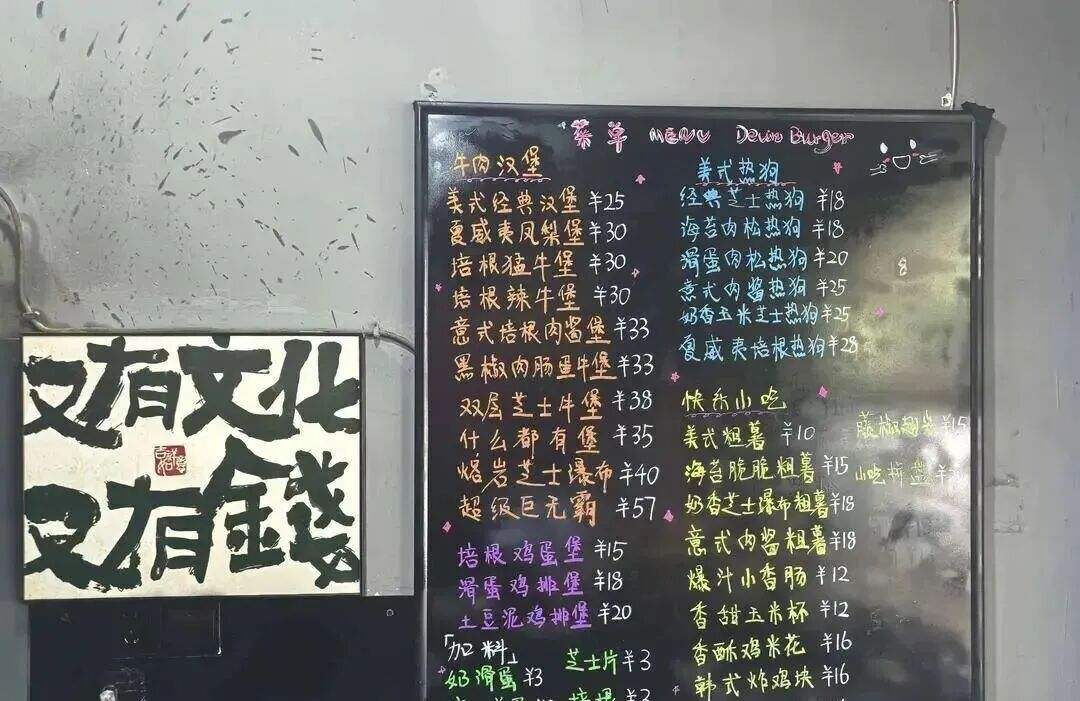 又有文化
又有錢
菜单 MENU Devin Burger
牛肉汉堡
美式经典汉堡 ¥25
夏威夷凤梨堡 ¥30
培根猛牛堡 ¥30
培根辣牛堡 ¥30
意式培根肉酱堡 ¥33
黑椒肉肠蛋牛堡 ¥33
双层芝士牛堡 ¥38
什么都有堡 ¥35
熔岩芝士瀑布 ¥40
超级巨无霸 ¥57
培根鸡蛋堡 ¥15
滑蛋鸡排堡 ¥18
土豆泥鸡排堡 ¥20
「加料」
芝士片 ¥3
奶滑蛋 ¥3
培根
美式热狗
经典芝士热狗 ¥18
海苔肉松热狗 ¥18
滑蛋肉松热狗 ¥20
意式肉酱热狗 ¥25
奶香玉米芝士热狗 ¥25
夏威夷培根热狗 ¥28
快乐小吃
美式粗薯 ¥10
海苔脆脆粗薯 ¥15
奶香芝士瀑布粗薯 ¥18
意式肉酱粗薯 ¥18
爆汁小香肠 ¥12
香甜玉米杯 ¥12
香酥鸡米花 ¥16
韩式炸鸡块 ¥16
藤椒翅尖 ¥15
小吃拼盘